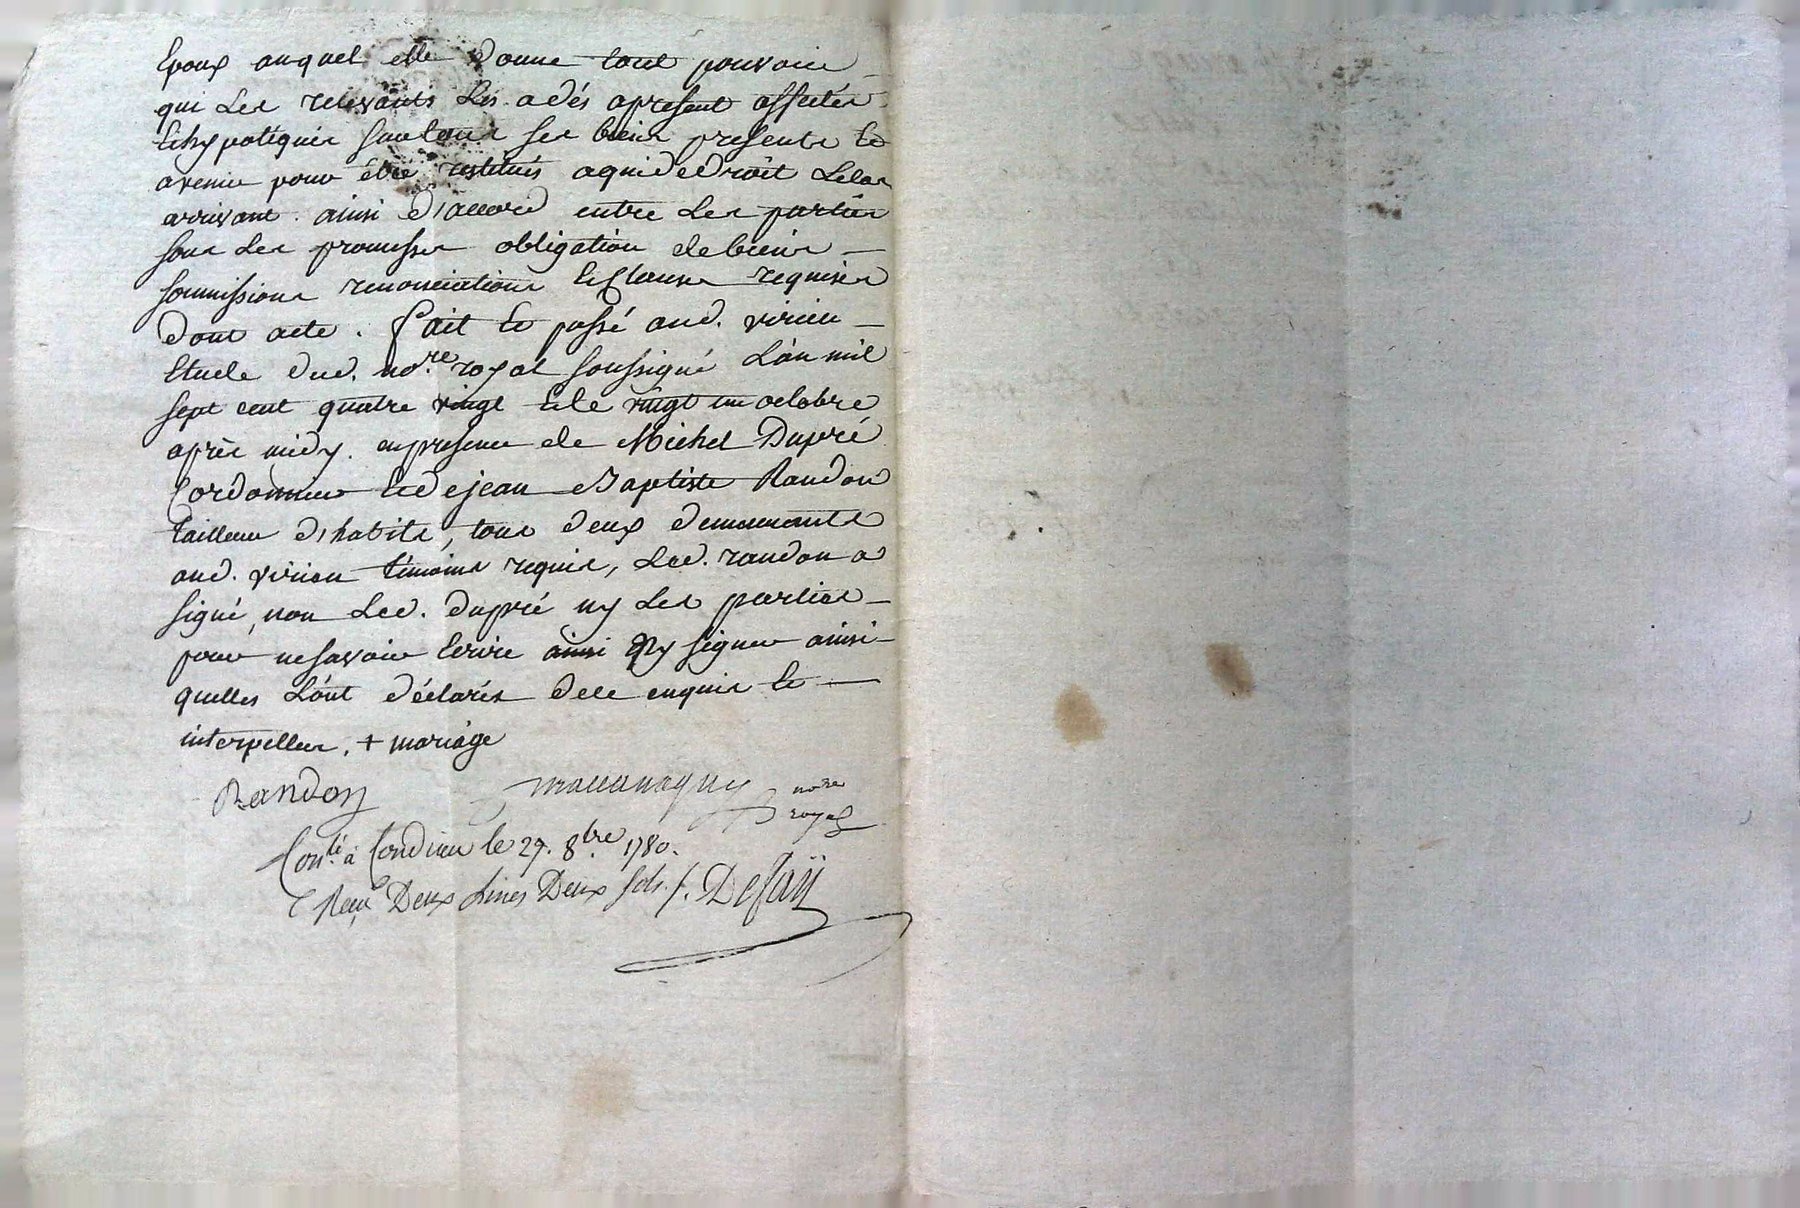 Epoux auquel elle donne tout pouvoir
qui les recevants les a dés apresent affectés
Et hypotéqués sur tous ses biens presents Et
avenir pour être restitués a qui de droit le cas
arrivant. ainsi d'accord entre les parties
sous les promesses obligation de biens
soumissions renonciations Et Clauses requises
dont acte. fait Et passé aud. virieu
Etude dud. no.re royal soussigné L'an mil
sept cent quatre vingt Et le vingt un octobre
après midy. en presence de Michel Dupré
Cordonnier Et de jean Baptiste Randon
tailleur d'habits, tous deux demeurants
aud. virieu témoins requis, Led. randon a
signé, non Led. dupré ny les parties
pour ne savoir Ecrire ainsi ny signer ainsi
quelles L'ont déclarés de ce enquis Et
interpellés. + mariage
Randon
no.re
royal
Con.lé à Condrieu le 27. 8.bre 1780.
Reçu Deux Livres Deux sols. /. Defaÿ